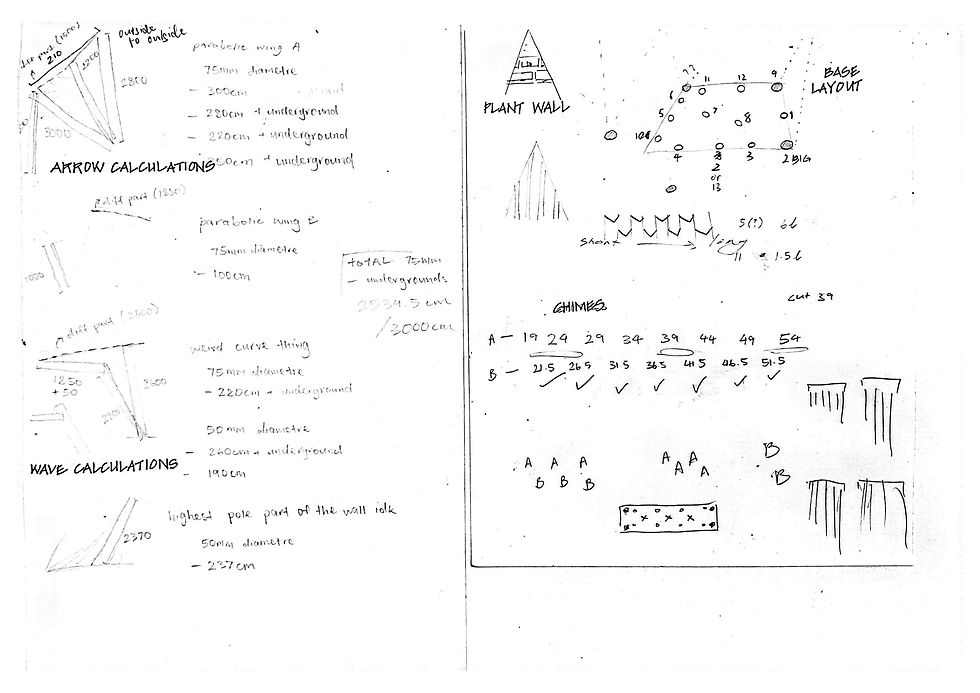 outside
to outside
210
2800
3000
parabolic wing A
75mm diametre
- 300cm
- 280cm + underground
- 220cm + underground
50cm + underground
ARROW CALCULATIONS
diff part (1250)
1000
parabolic wing B
75mm diametre
- 100cm
TOTAL 75mm
- undergrounds
2534.5 cm
/3000cm
diff part (2600)
1250
+50
2200
weird curve thing
75mm diametre
- 220cm + underground
50mm diametre
- 260cm + underground
- 190cm
WAVE CALCULATIONS
2370
highest pole part of the wall idk
50mm diametre
- 237cm
PLANT WALL
BASE
LAYOUT
??
11
12
9
6
5
7
8
1
10
4
2
or
13
3
2 BIG
short
long
5(?)
66
11
1.56
CHIMES
cut 39
A - 19 24 29 34 39 44 49 54
B - 21.5 26.5 31.5 36.5 41.5 46.5 51.5
A A A
B B B
A A
A A
B
B
x x x